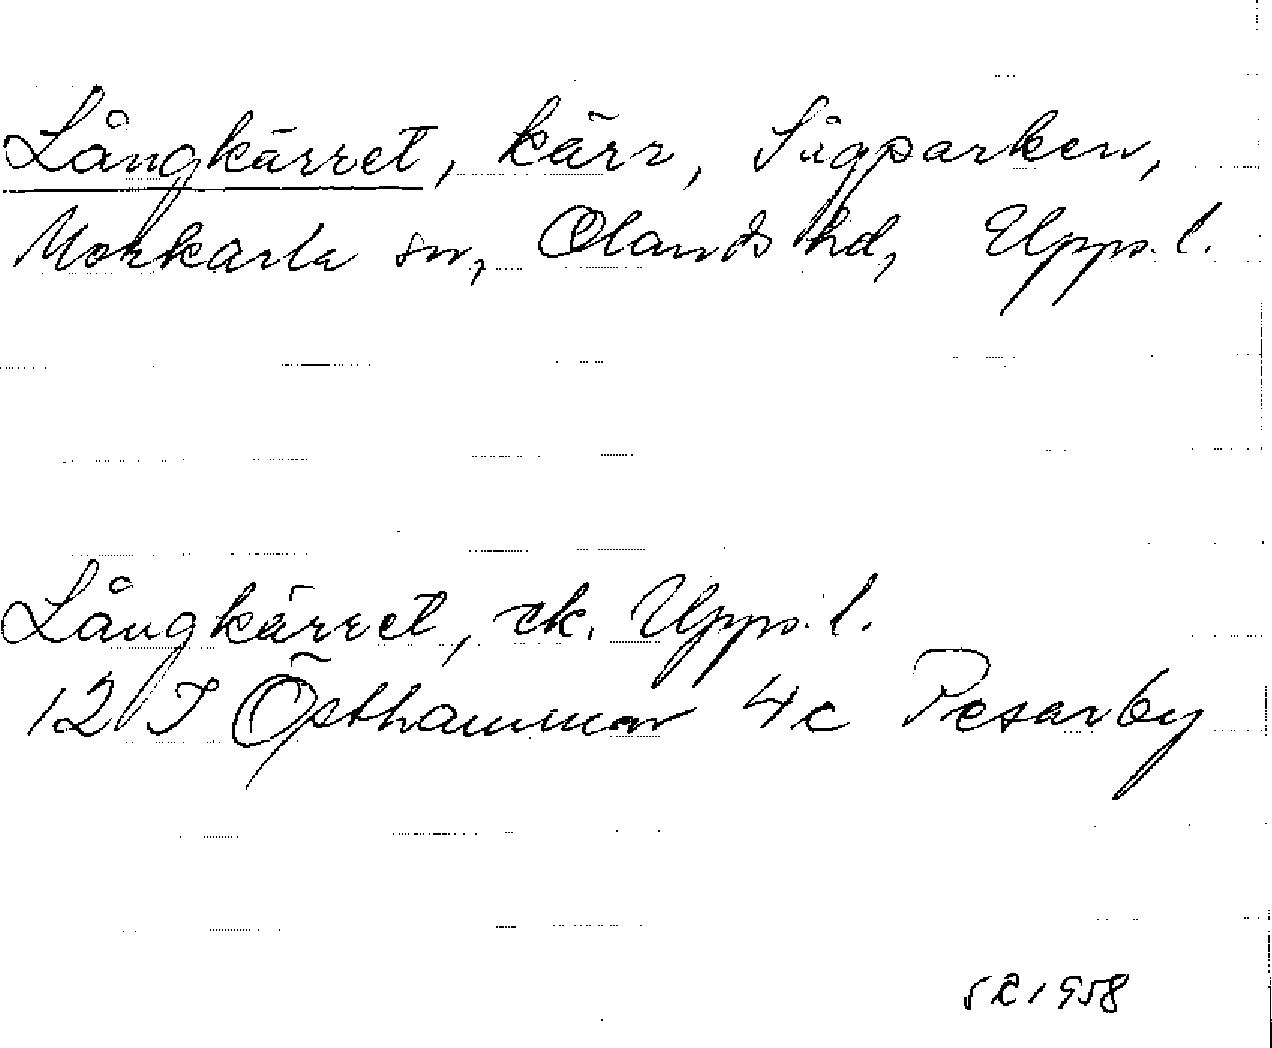 Långkärret, kärr, Sågparken,
Morkarla sn, Olands hd, Uppl.
Långkärret, ek. Uppl.
12 I Östhammar 4c Pesarby
SR 1958